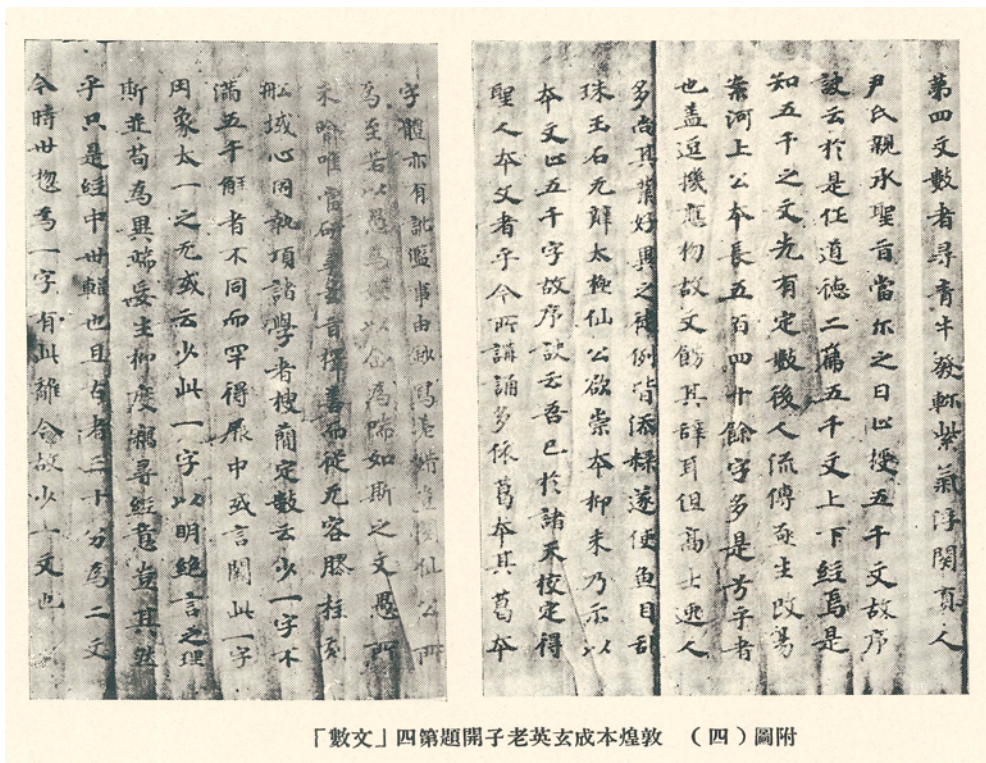 第四文數者尋青牛發軫紫氣浮關真人
尹氏親承聖旨當尔之日止授五千文故序
訣云於是作道德二篇五千文上下經焉是
知五千之文先有定數後人流傳亟生改易
案河上公本長五百四十餘字多是兮乎者
也盖逗機應物故文餝其辞耳但高士逸人
多尚其業好異之徒例皆添糅遂使魚目乱
珠玉石无辯太極仙公欲崇本抑末乃示以
本文止五千字故序訣云吾已於諸天校定得
聖人本文者乎今所講誦多依葛本其葛本
字體亦有訛濫事由
為至若以 為 以 為 如斯之文愚所
未喻唯當研 旨擇善而從无容膠柱刻
舩域心同執項諸學者搜蕳定數云少一字不
滿五千解者不同而罕得厥中或言闕此一字
因象太一之无或云少此一字以明絕言之理
斯並苟為異端妄生抑度耶尋經意豈其然
乎只是經中丗輻也且古者三十分為二文
今時丗揔為一字有此離合故少一文也
附圖（四）　敦煌本成玄英老子開題第四「文數」